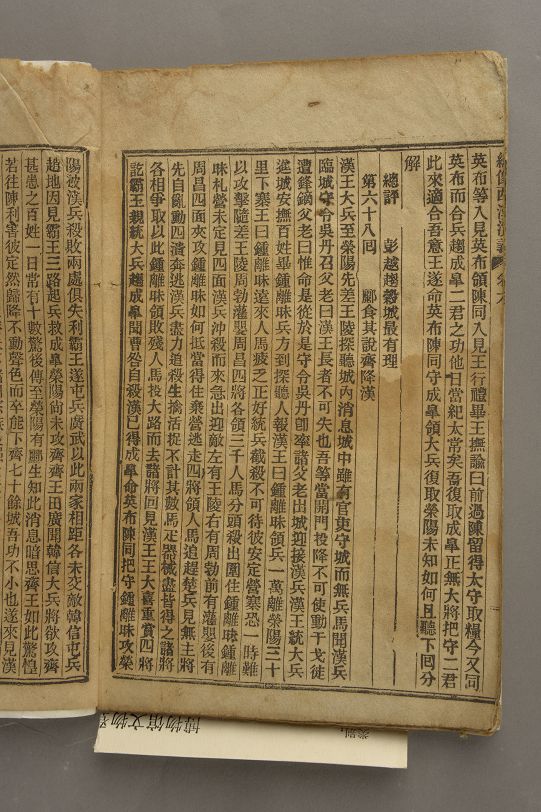 英布等入見英布領陳同入見王行禮畢王撫諭曰前過陳留得太守取糧今又同
英布而合兵趨成臯二君之功他日當紀太常矣吾復取成臯正無大將把守二君
此來適合吾意王遂命英布陳同守成臯領大兵復取滎陽未知如何且聽下回分
解
總評 彭越趨穀城最有理
第六十八回 酈食其說齊降漢
漢王大兵至滎陽先差王陵探聽城內消息城中雖有官吏守城而無兵馬聞漢兵
臨城守令吳丹召父老曰漢王長者不可失也吾等當開門投降不可使動干戈徒
遭鋒鏑父老曰惟命是從於是守令吳丹卽率諸父老出城迎接漢兵漢王統大兵
進城安撫百姓畢鍾離昧兵方到探聽人報漢王曰鍾離昧領兵一萬離滎陽三十
里下寨王曰鍾離昧遠來人馬疲乏正好統兵截殺不可待彼安定營寨恐一時難
以攻擊隨差王陵周勃灌嬰周昌四將各領三千人馬分頭殺出圍住鍾離昧鍾離
昧札營未定見四面漢兵沖殺而來急出迎敵左有王陵右有周勃前有灌嬰後有
周昌四面夾攻鍾離昧如何抵當得住棄營逃走四將領人馬追趕楚兵見無主將
先自亂動四潰奔逃漢兵盡力追殺生擒活捉不計其數馬疋器械盡皆得之諸將
各相爭取以此鍾離昧領敗殘人馬投大路而去諸將回見漢王王大喜重賞四將
訖霸王親統大兵趨成臯聞曹咎自殺漢已得成臯命英布陳同把守鍾離昧攻滎
陽被漢兵殺敗兩處俱失利霸王遂屯兵廣武以此兩家相距各未交敵韓信屯兵
趙地因見霸王三路起兵救成臯滎陽尙未攻齊齊王田廣聞韓信大兵將欲攻齊
甚患之百姓一日常有十數驚後傳至滎陽有酈生知此消息暗思齊王如此驚惶
若往陳利害彼定然歸降不動聲色而卒能下齊七十餘城吾功不小也遂來見漢
博物馆文物
类别